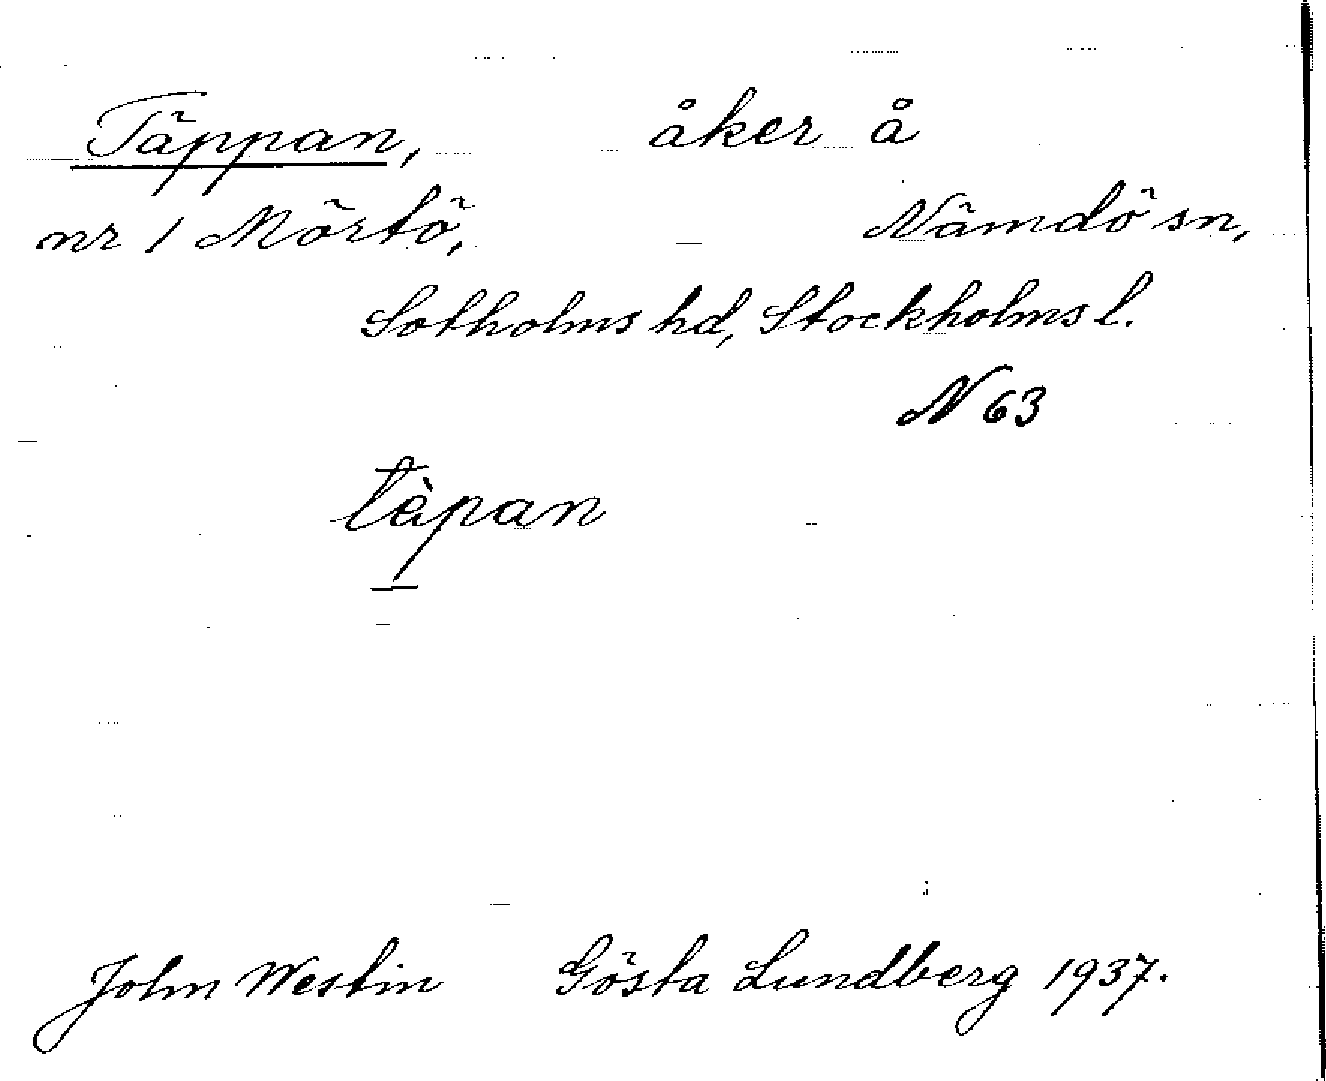 Täppan, åker å
nr 1 Mörtö, Nämdö sn,
Sotholms hd, Stockholms l.
N 63
tèpan
John Westin Gösta Lundberg 1937.